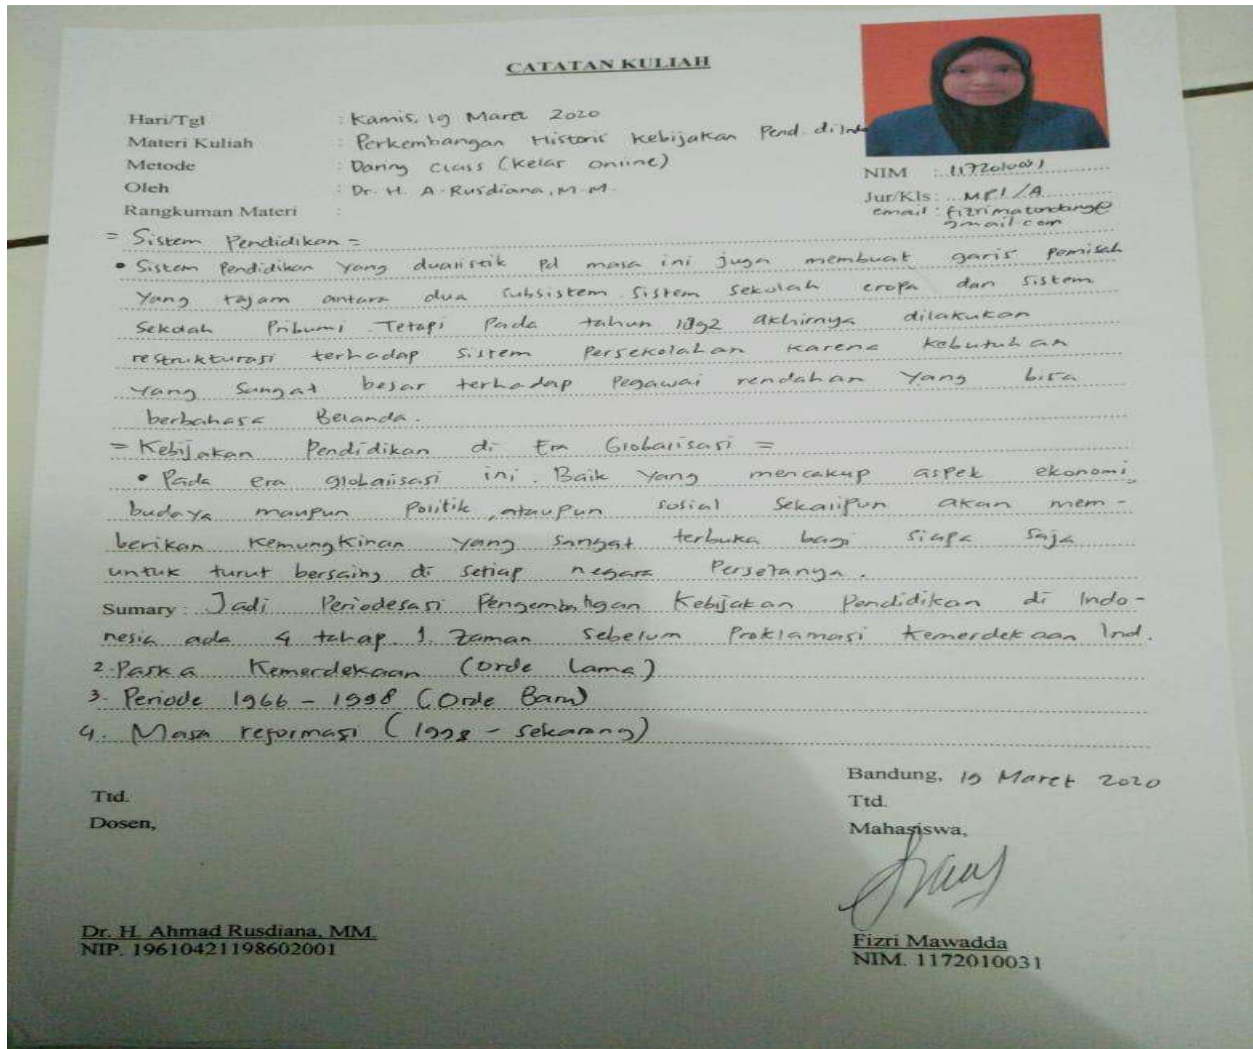 CATATAN KULIAH
Hari/Tgl : Kamis, 19 Maret 2020
Materi Kuliah : Perkembangan Historis kebijakan Pend. di Indo
Metode : Daring Class (Kelas Online)
Oleh : Dr. H. A. Rusdiana, M.M.
Rangkuman Materi :
NIM :
Jur/Kls : MPI/A
email : fizrimatondang@
gmail.com
= Sistem Pendidikan =
• Sistem Pendidikan Yang dualistik Pd masa ini juga membuat garis pemisah
Yang tajam antara dua subsistem. Sistem Sekolah eropa dan sistem
Sekolah Pribumi. Tetapi Pada tahun 1892 akhirnya dilakukan
restrukturasi terhadap sistem Persekolahan karena kebutuhan
Yang Sangat besar terhadap Pegawai rendahan Yang bisa
berbahasa Belanda.
= Kebijakan Pendidikan di Era Globalisasi =
• Pada era globalisasi ini. Baik Yang mencakup aspek ekonomi,
budaya maupun Politik, ataupun sosial Sekalipun akan mem-
berikan kemungkinan yang sangat terbuka bagi siapa saja
untuk turut bersaing di setiap negara
Sumary : Jadi Periodesasi Pengembangan Kebijakan Pendidikan di Indo-
nesia ada 4 tahap. 1. Zaman Sebelum Proklamasi Kemerdekaan Ind.
2. Paska Kemerdekaan (Orde Lama)
3. Periode 1966 - 1998 (Orde Baru)
4. Masa reformasi (1998 - sekarang)
Bandung, 19 Maret 2020
Ttd.
Dosen,
Ttd.
Mahasiswa,
Dr. H. Ahmad Rusdiana, MM.
NIP. 19610421198602001
Fizri Mawadda
NIM. 1172010031